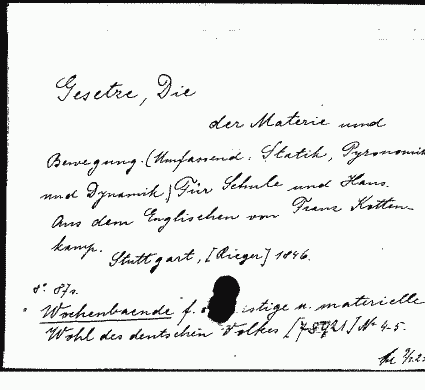 Gesetze, Die
der Materie und
Bewegung. (Umfassend: Statik, Pyronomik
und Dynamik) Für Schule und Haus.
Aus dem Englischen von Franz Kotten-
kamp.
Stuttgart, [Rieger] 1846.
8°. 87s.
Wochenbaende f. istige u. materielle
Wohl des deutschen Volkes [ ] No 4-5.